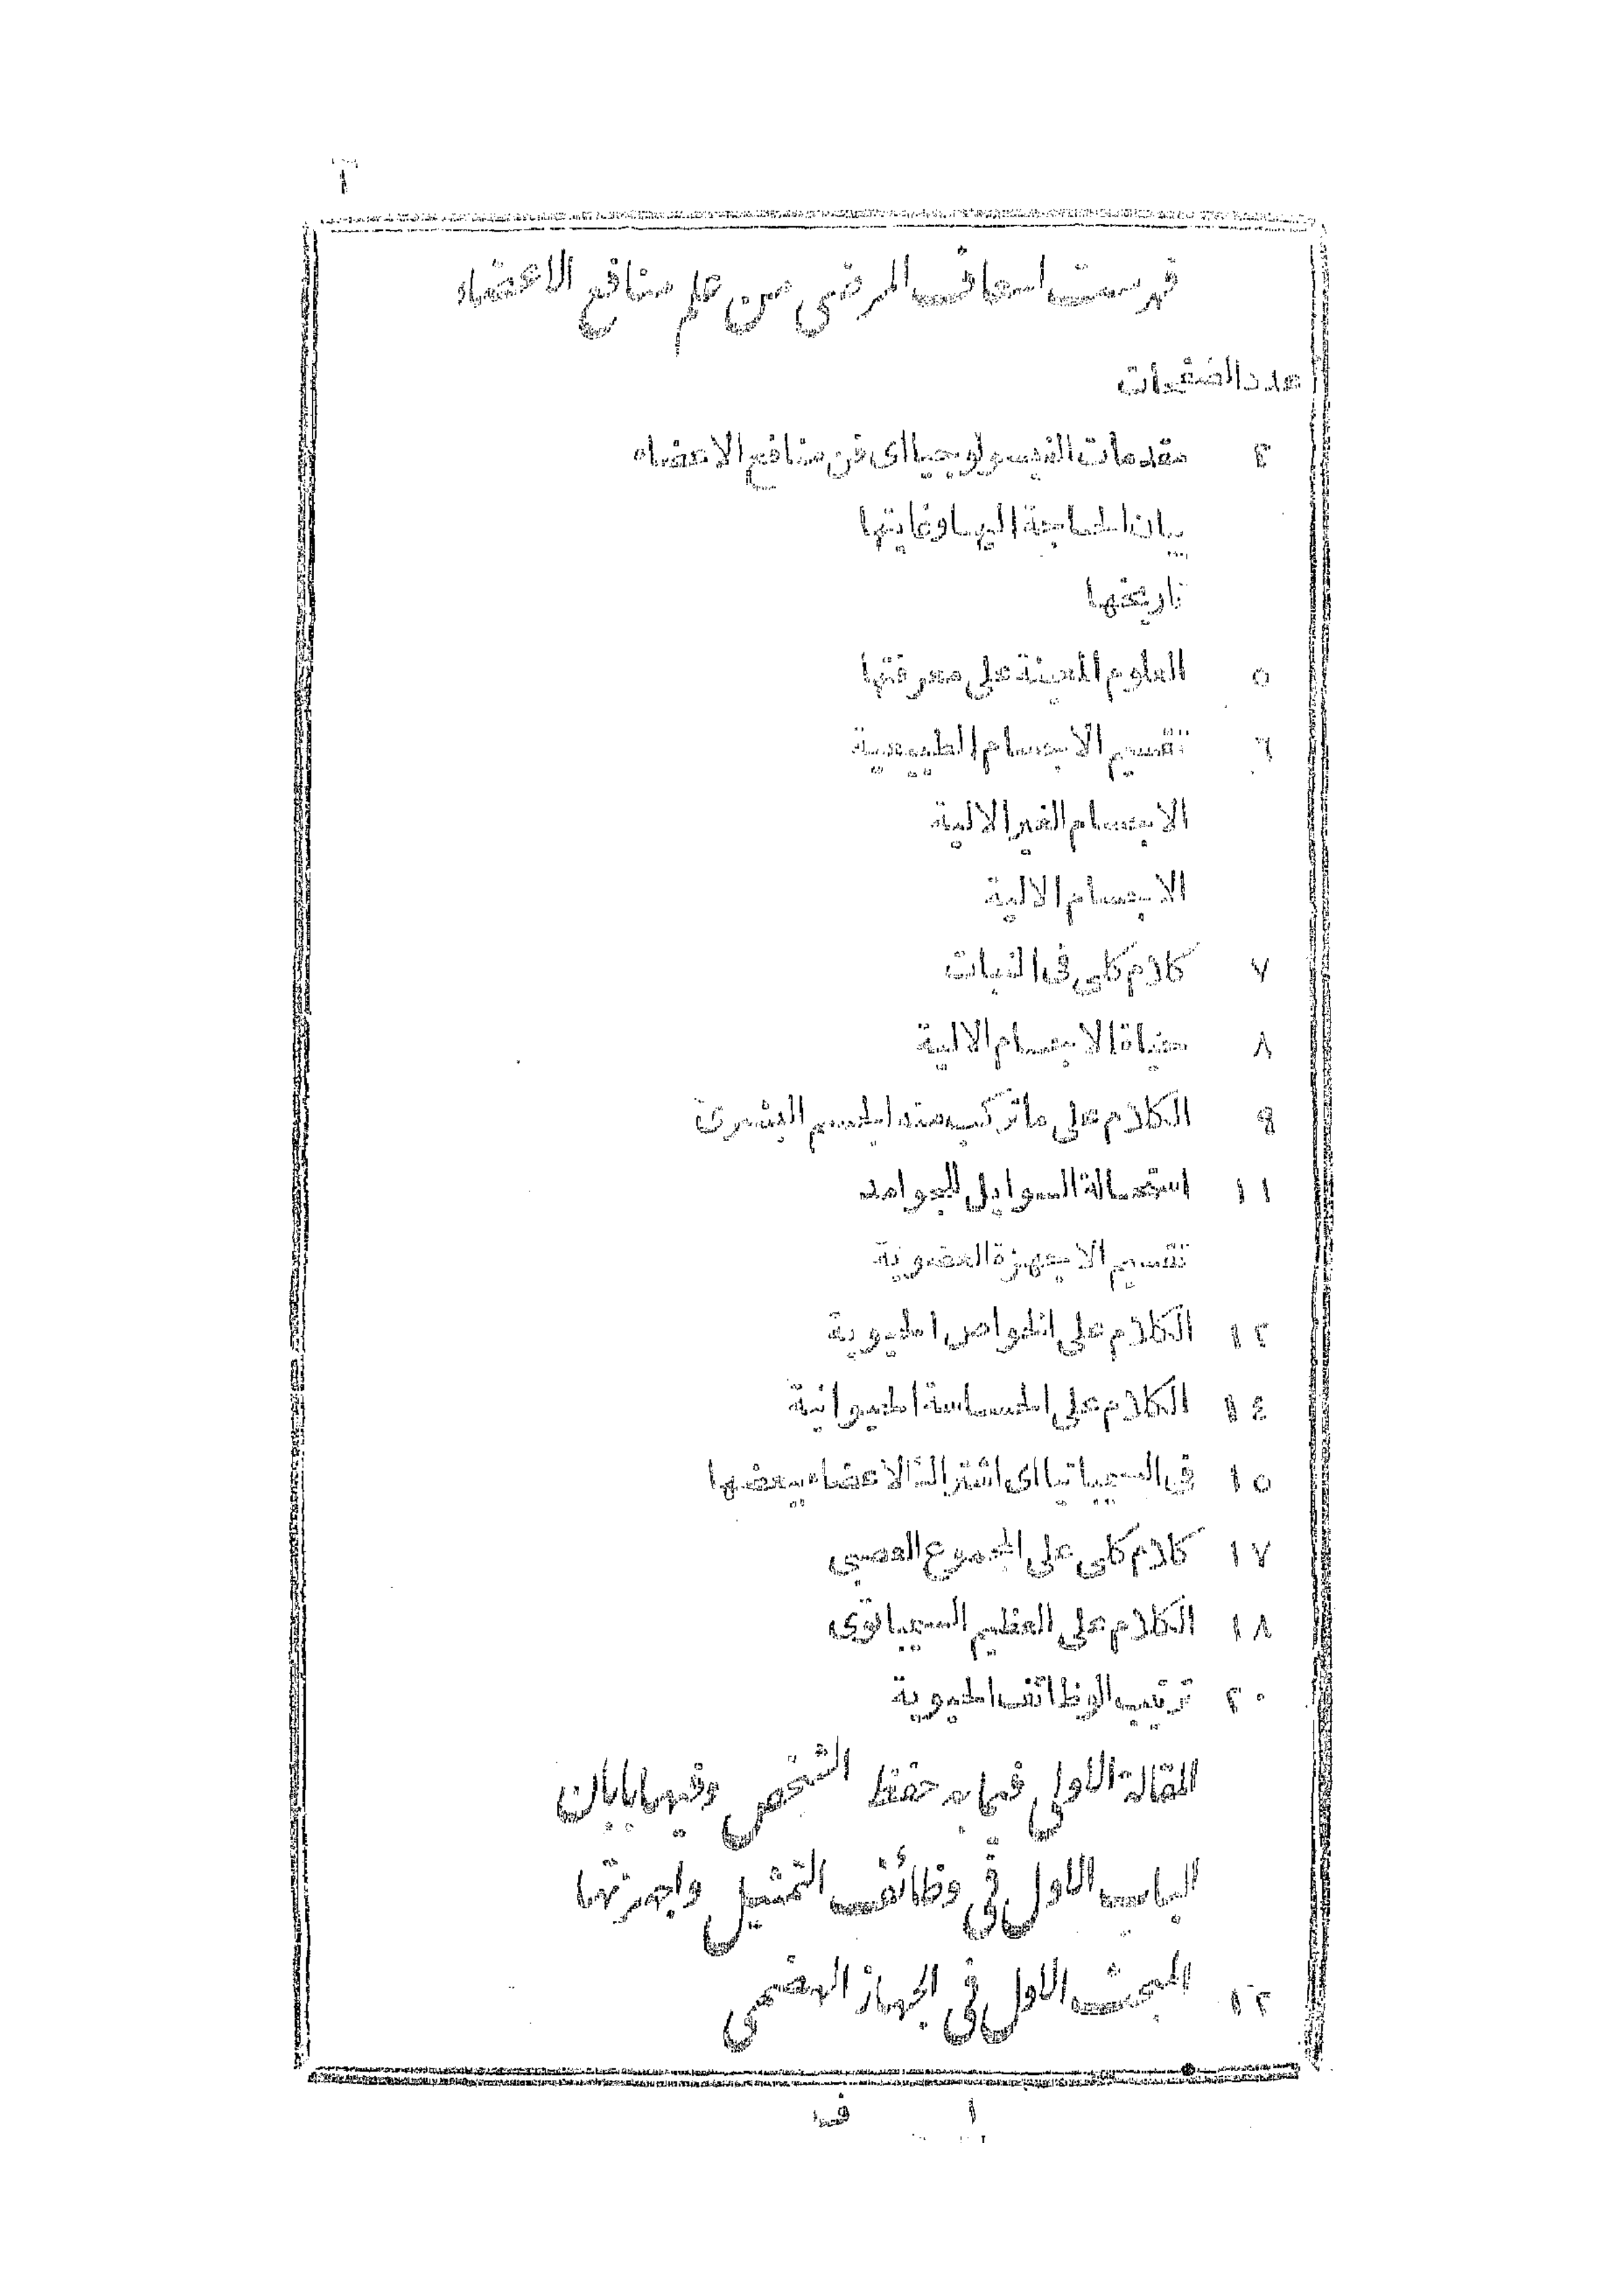 فهرست اسعاف المرضى من علم منافع الاعضاء
عدد الصفحات
٤ مقدمات الفيسولوجيا اى فن منافع الاعضاء
بيان الحاجة اليها وغايتها
تاريخها
٥ العلوم المعينة على معرفتها
٦ تقسيم الاجسام الطبيعية
الاجسام الغير الالية
الاجسام الالية
٧ كلام كلى فى النبات
٨ حياة الاجسام الالية
٩ الكلام على ما تركب منه الجسم البشرى
١١ استحالة السوايل للجوامد
تقسيم الاجهزة العضوية
١٢ الكلام على الخواص الحيوية
١٤ الكلام على الحساسة الحيوانية
١٥ فى السيمپاتيا اى اشتراك الاعضاء ببعضها
١٧ كلام كلى على المجموع العصبى
١٨ الكلام على العظيم السيمپاتوى
٢٠ ترتيب الوظائف الحيوية
المقالة الاولى فيما به حفظ الشخص وفيها بابان
الباب الاول فى وظائف التمثيل واجهزتها
٢١ المبحث الاول فى الجهاز الهضمى
ا ف